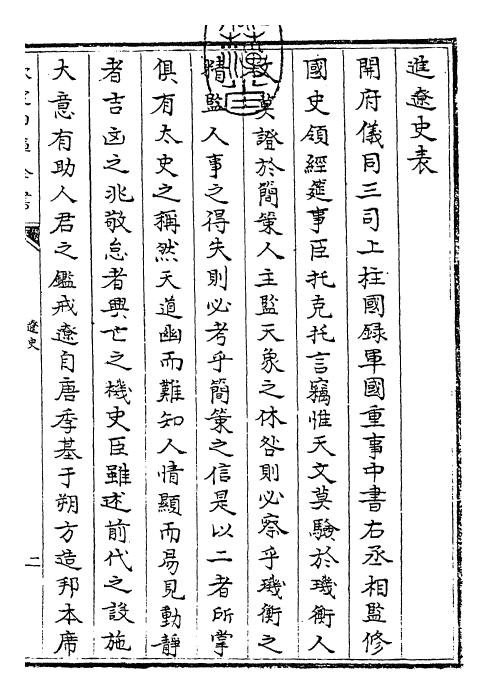 進遼史表
開府儀同三司上柱國録軍國重事中書右丞相監修
國史領經筵事臣托克托言竊惟天文莫驗於璣衡人
文莫證於簡策人主監天象之休咎則必察乎璣衡之
精監人事之得失則必考乎簡策之信是以二者所掌
俱有太史之稱然天道幽而難知人情顯而易見動静
者吉凶之兆敬怠者興亡之機史臣雖述前代之設施
大意有助人君之鑑戒遼自唐季基于朔方造邦本席
遼史
二